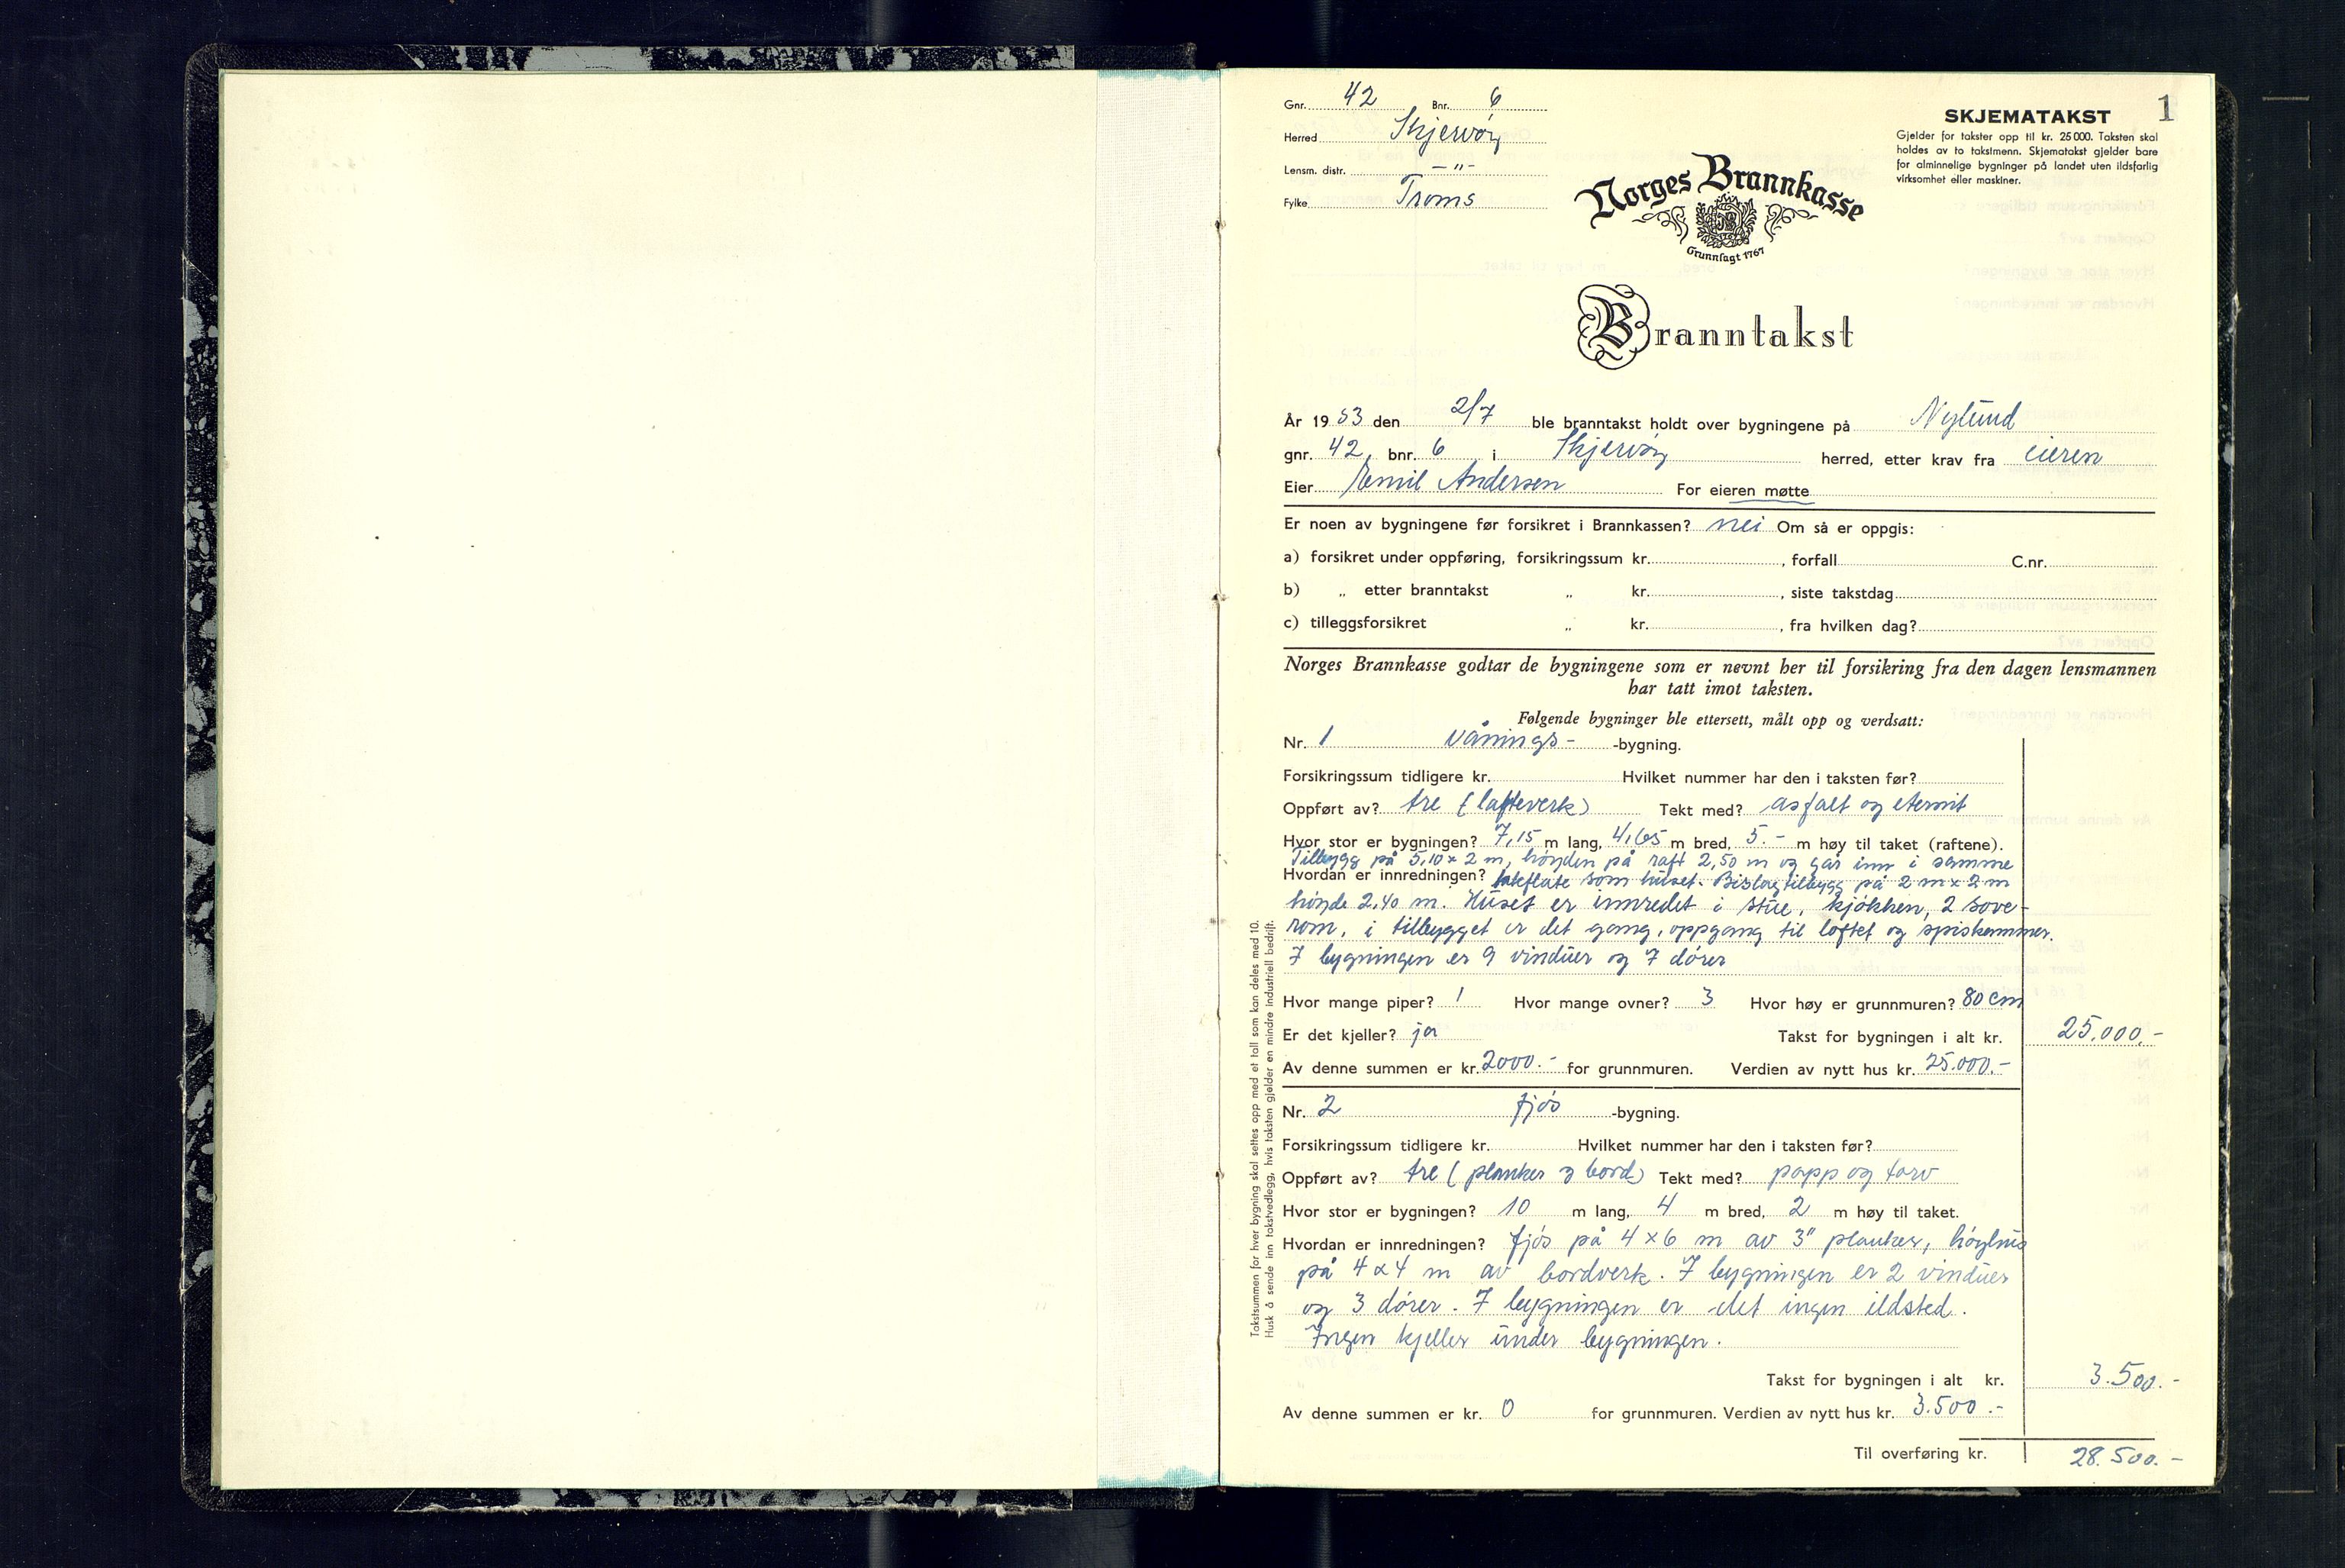 Gnr. 42 Bnr. 6
Herred Skjervøy
Lensm. distr. — " -
Fylke Troms
SKJEMATAKST 1
Gjelder for takster opp til kr. 25 000. Taksten skal
holdes av to takstmenn. Skjematakst gjelder bare
for alminnelige bygninger på landet uten ildsfarlig
virksomhet eller maskiner.
Norges Brannkasse
Grunnlagt 1767
Branntakst
År 19 53 den 2/7 ble branntakst holdt over bygningene på Nylund
gnr. 42, bnr. 6 i Skjervøy herred, etter krav fra eieren
Eier Emil Andersen For eieren møtte
Er noen av bygningene før forsikret i Brannkassen? nei Om så er oppgis:
a) forsikret under oppføring, forsikringssum kr. , forfall C.nr.
b) „ etter branntakst „ kr. , siste takstdag
c) tilleggsforsikret „ kr. , fra hvilken dag?
Norges Brannkasse godtar de bygningene som er nevnt her til forsikring fra den dagen lensmannen
har tatt imot taksten.
Følgende bygninger ble ettersett, målt opp og verdsatt:
Nr. 1 Vånings- -bygning.
Forsikringssum tidligere kr. Hvilket nummer har den i taksten før?
Oppført av? tre (lafteverk) Tekt med? asfalt og eternit
Hvor stor er bygningen? 7,15 m lang, 4,65 m bred, 5.- m høy til taket (raftene).
Tilbygg på 5,10 x 2 m, høyden på raft 2,50 m og går inn i samme
Hvordan er innredningen? takflate som huset. Bislagtilbygg på 2 m x 2 m
høyde 2,40 m. Huset er innredet i stue, kjøkken, 2 sove-
rom, i tilbygget er det gang, oppgang til loftet og spiskammer.
I bygningen er 9 vinduer og 7 dører
Hvor mange piper? 1 Hvor mange ovner? 3 Hvor høy er grunnmuren? 80 cm
Er det kjeller? ja Takst for bygningen i alt kr. 25.000.-
Av denne summen er kr. 2000.- for grunnmuren. Verdien av nytt hus kr. 25.000.-
Nr. 2 fjøs -bygning.
Forsikringssum tidligere kr. Hvilket nummer har den i taksten før?
Oppført av? tre (planker og bord) Tekt med? papp og torv
Hvor stor er bygningen? 10 m lang, 4 m bred, 2 m høy til taket.
Hvordan er innredningen? fjøs på 4 x 6 m av 3" planker, høyhus
på 4 x 4 m av bordverk. I bygningen er 2 vinduer
og 3 dører. I bygningen er det ingen ildsted.
Ingen kjeller under bygningen.
Takst for bygningen i alt kr. 3.500.-
Av denne summen er kr. 0 for grunnmuren. Verdien av nytt hus kr. 3.500.-
Til overføring kr. 28.500.-
Takstsummen for hver bygning skal settes opp med et tall som kan deles med 10.
Husk å sende inn takstvedlegg, hvis taksten gjelder en mindre industriell bedrift.